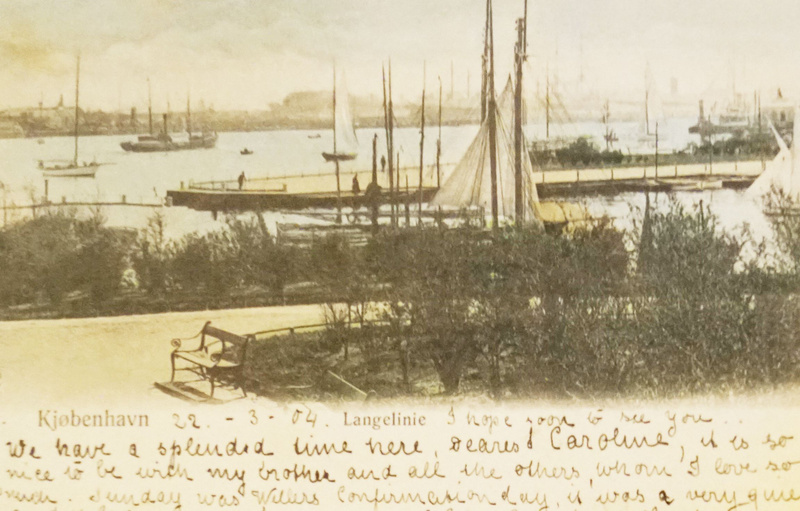 Kjøbenhavn 22. - 3 - 04. Langelinie I hope soon to see you..
We have a splended time here, Dearest Caroline, it is so
nice to be with my brother and all the others, whom I love so
much. Sunday was Willers Confirmation day, it was a very quie